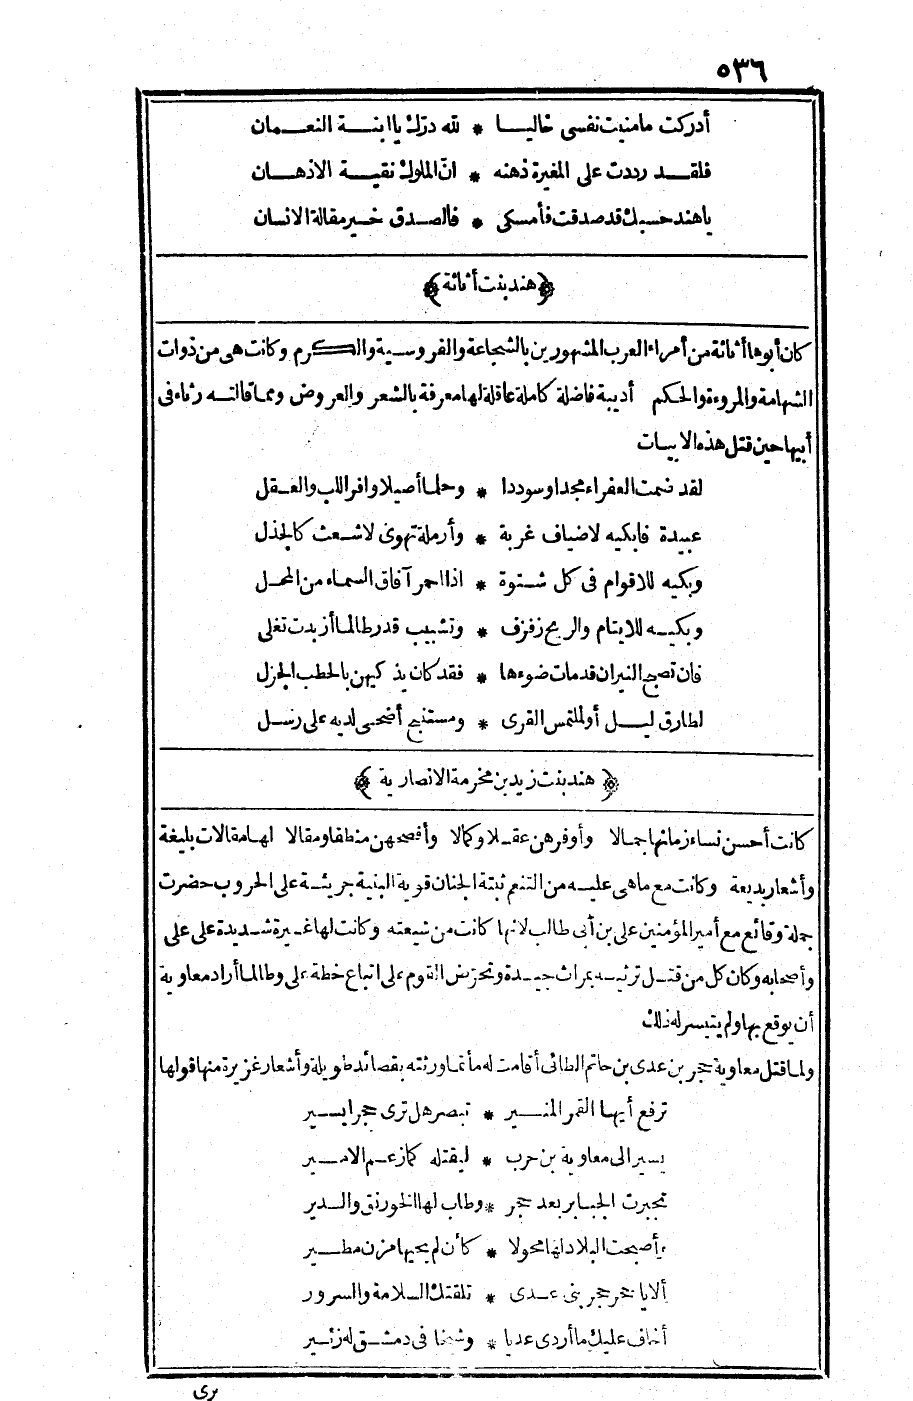 ٥٣٦
أدركت مامنيت نفسى خاليا * لله درّك ياابنة النعمان
فلقد رددت على المغيرة ذهنه * انّ الملوك نقية الاذهان
ياهند حسبك قد صدقت فأمسكى * فالصدق خير مقالة الانسان
﴿هند بنت أثاثة﴾
كان أبوها أثاثة من أمراء العرب المشهورين بالشجاعة والفروسية والكرم وكانت هى من ذوات
الشهامة والمروءة والحكم أديبة فاضلة كاملة عاقلة لها معرفة بالشعر والعروض ومما قالته رثاء فى
أبيها حين قتل هذه الابيات
لقد ضمت العفراء مجدا وسوددا * وحلما أصيلا وافر اللب والعقل
عبيدة فابكيه لاضياف غربة * وأرملة تهوى لاشعث كالجذل
وبكيه للاقوام فى كل شتوة * اذا احمر آفاق السماء من المحل
وبكيه للايتام والريح زفزف * وتشبيب قدر طالما أزبدت تغلى
فان تصبح النيران قد مات ضوءها * فقد كان يذكيهن بالحطب الجزل
لطارق ليل أو لملتمس القرى * ومستنبح أضحى لديه على رسل
﴿هند بنت زيد بن مخرمة الانصارية﴾
كانت أحسن نساء زمانها جمالا وأوفرهن عقلا وكمالا وأفصحهن منطقا ومقالا لها مقالات بليغة
وأشعار بديعة وكانت مع ماهى عليه من التنعم ثبتة الجنان قوية البنية جريئة على الحروب حضرت
جملة وقائع مع أمير المؤمنين على بن أبى طالب لانها كانت من شيعته وكانت لها غيرة شديدة على على
وأصحابه وكان كل من قتل ترثيه بمراث جيدة وتحرّض القوم على اتباع خطة على وطالما أراد معاوية
أن يوقع بها ولم يتيسر له ذلك
ولما قتل معاوية حجر بن عدى بن حاتم الطائى أقامت له مأتما ورثته بقصائد طويلة وأشعار غزيرة منها قولها
ترفع أيها القمر المنير * تبصر هل ترى حجرا يسير
يسير الى معاوية بن حرب * ليقتله كما زعم الامير
تجبرت الجبابر بعد حجر * وطاب لها الخورنق والسدير
وأصبحت البلاد لها محولا * كأن لم يحيها مزن مطير
ألايا حجر حجر بنى عدى * تلقتك السلامة والسرور
أخاف عليك ما أردى عديا * وشيخا فى دمشق له زئير
برى